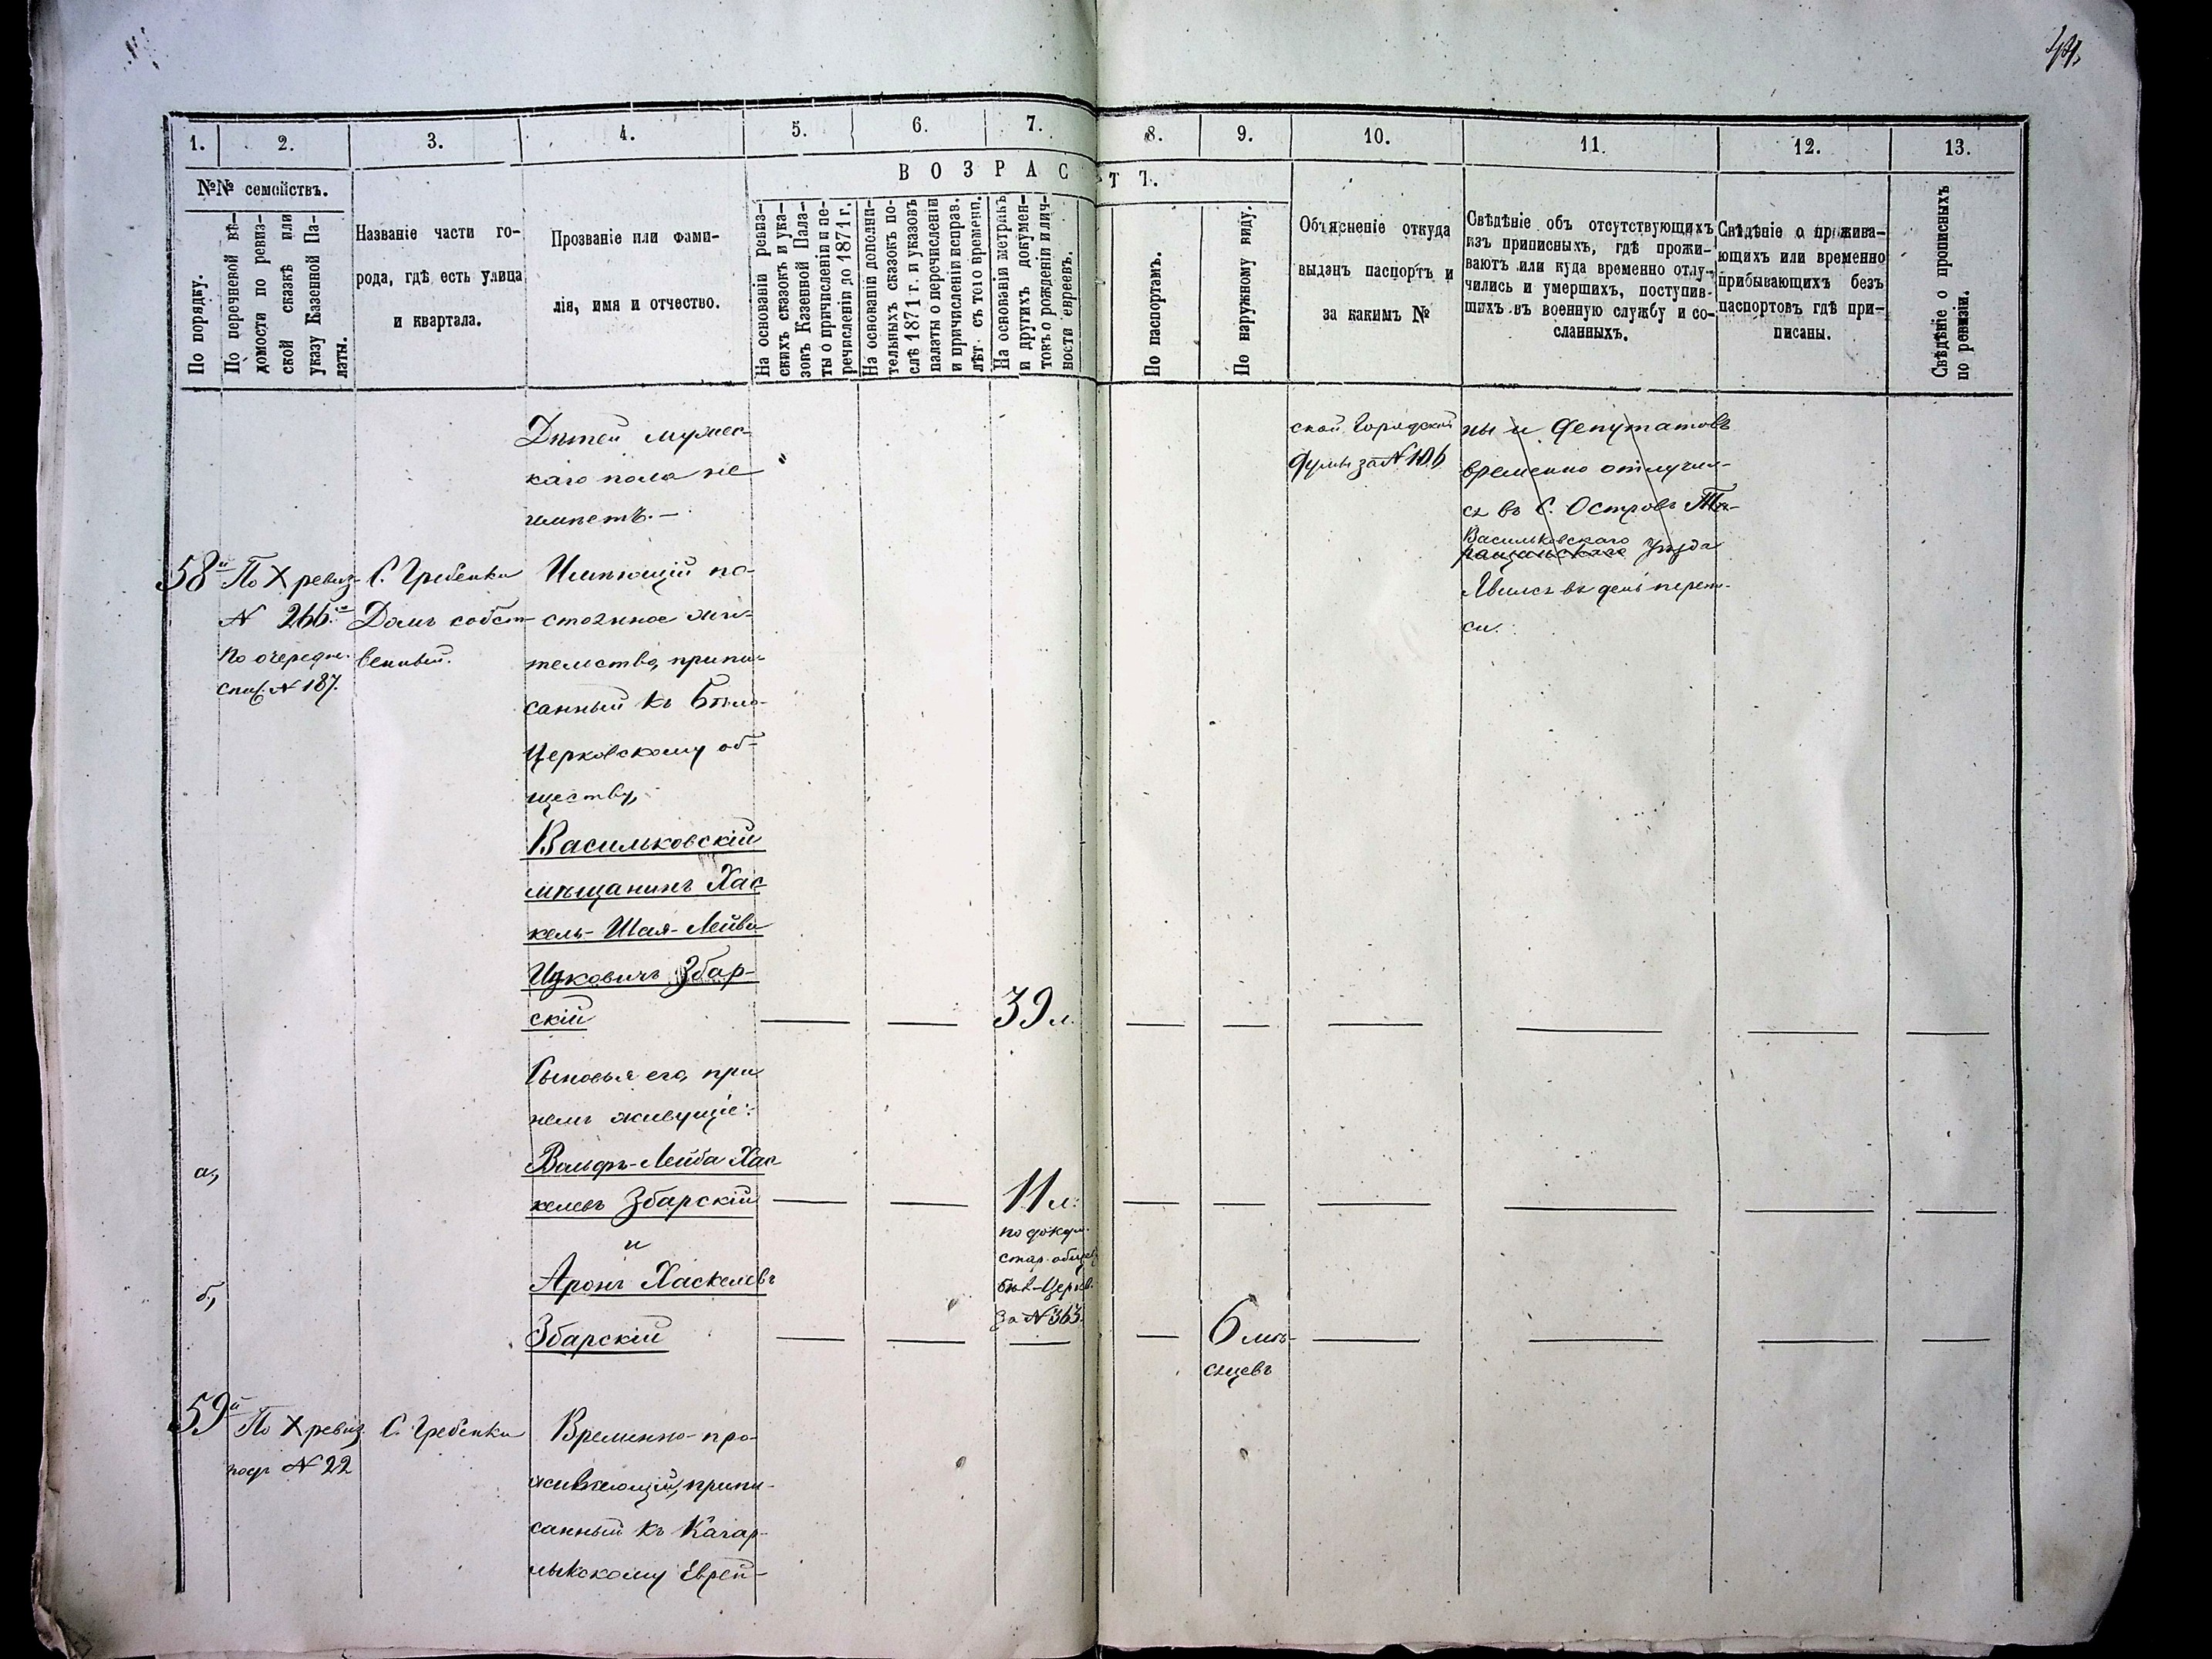 44,
1.
2.
3.
4.
5.
6.
7.
8.
9.
10.
11.
12.
13.
№№ семействъ.
ВОЗРАСТЪ.
По порядку.
По перечневой вѣ-
домости по ревиз-
ской сказкѣ или
указу Казенной Па-
латы.
Названіе части го-
рода, гдѣ есть улица
и квартала.
Прозваніе или фами-
лія, имя и отчество.
На основаніи ревиз-
скихъ сказокъ и ука-
зовъ Казенной Пала-
ты о причисленіи и пе-
речисленіи до 1871 г.
На основаніи дополни-
тельныхъ сказокъ по-
слѣ 1871 г. и указовъ
палаты о перечисленіи
и причисленіи исправ.
лѣт. съ того времени.
На основаніи метрикъ
и другихъ докумен-
товъ о рожденіи и лич-
ности евреевъ.
По паспортамъ.
По наружному виду.
Объясненіе откуда
выданъ паспортъ и
за какимъ №
Свѣдѣніе объ отсутствующихъ
изъ приписныхъ, гдѣ прожи-
ваютъ или куда временно отлу-
чились и умершихъ, поступив-
шихъ въ военную службу и со-
сланныхъ.
Свѣдѣніе о прожива-
ющихъ или временно
прибывающихъ безъ
паспортовъ гдѣ при-
писаны.
Свѣдѣніе о прописныхъ
по ревизіи.
Дѣтей мужес-
каго пола не
имѣетъ.—
ской Городской
Думы за N 106
ны и Депутатовъ
временно отлучил-
ся въ С. Островъ
Васильковскаго
Уѣзда
Явился въ день перепи-
си.
58й
По X ревиз.
N 266.
По очередн.
спис. N 187.
С. Гребенки
Домъ собст-
венный.
Имѣющій по-
стоянное жи-
тельство, припи-
санный къ Бѣло-
Церковскому об-
ществу,
Васильковскій
мѣщанинъ Хас-
кель-Шая-Лейба
Ицковичъ Збар-
скій
39 л.
Сыновья его, при
немъ живущіе:
а,
Вольфъ-Лейба Хас-
келевъ Збарскій
11 л.
по докум.
стар. общест.
Бѣл-Церков.
за N 363.
и
б,
Аронъ Хаскелевъ
Збарскій
6 мѣ-
сяцевъ
59й
По X ревиз.
подъ N 22
С. Гребенки
Временно-про-
живающій, припи-
санный къ Кагар-
лыкскому Еврей-